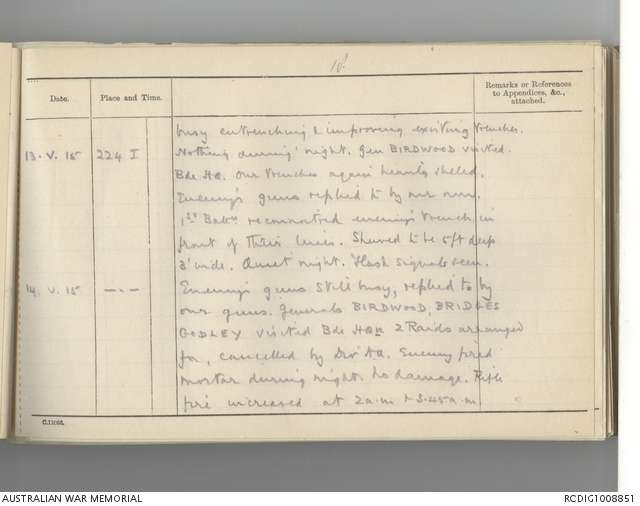 18
Date.
Place and Time.
Remarks or References to Appendices, &c., attached.
busy entrenching & improving existing trenches.
13. V. 15 224 I Nothing during night. Gen BIRDWOOD visited
Bde HQ. Our trenches again heavily shelled.
Enemy's guns replied to by our own.
1st Battn reconnoitred enemy's trench in
front of their lines. Shewed to be 5ft deep
3' wide. Quiet night. Flash signals seen.
14. V. 15 —"— Enemy's guns still busy, replied to by
our guns. Generals BIRDWOOD, BRIDGES
GODLEY visited Bde HQrs 2 Raids arranged
for, cancelled by Div HQ. Enemy fired
mortar during night. No damage. Rifle
fire increased at 2 a.m & 3.45 a.m
C.11066.
AUSTRALIAN WAR MEMORIAL
RCDIG1008851